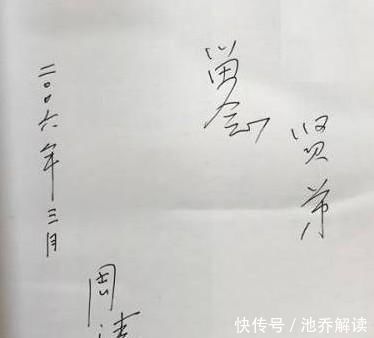 贤弟
留念
周
二〇〇六年三月
快传号／池乔解读